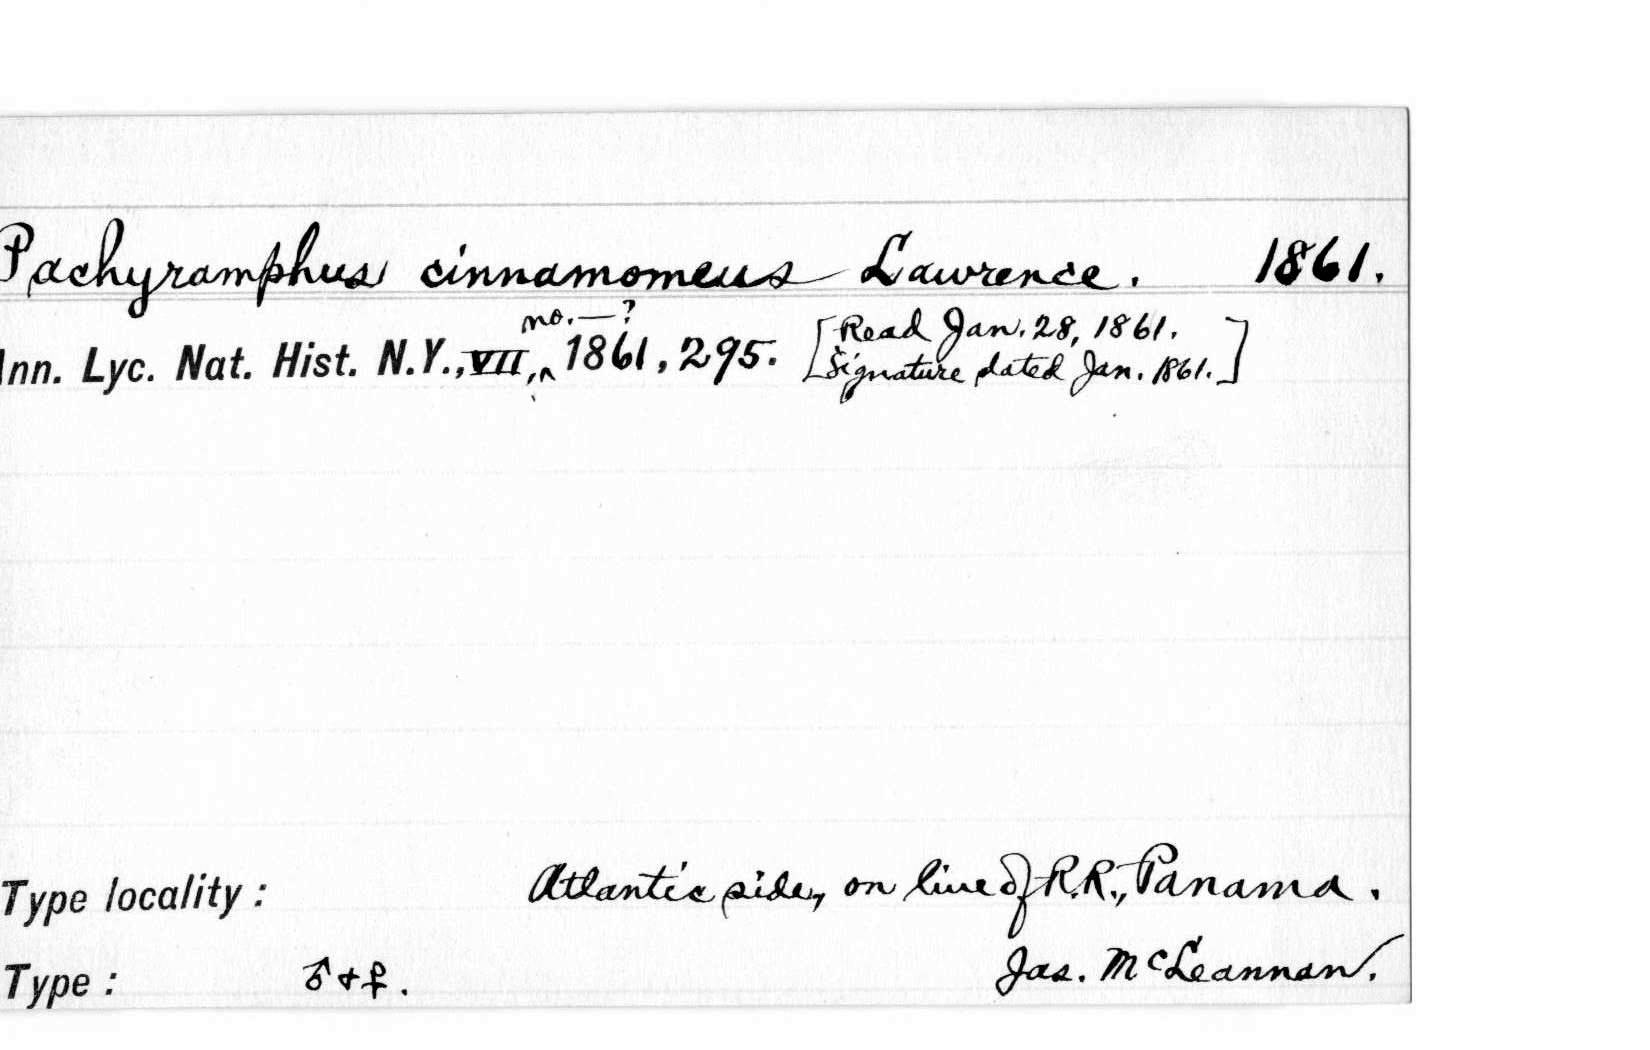 Pachyramphus cinnamomeus Lawrence. 1861.
no. — ?
Ann. Lyc. Nat. Hist. N.Y., VII, ^ 1861, 295. [Read Jan. 28, 1861.
Signature dated Jan. 1861.]
Type locality: Atlantic side, on line of R.R., Panama.
Type: ♂ + ♀. Jas. McLeannan.